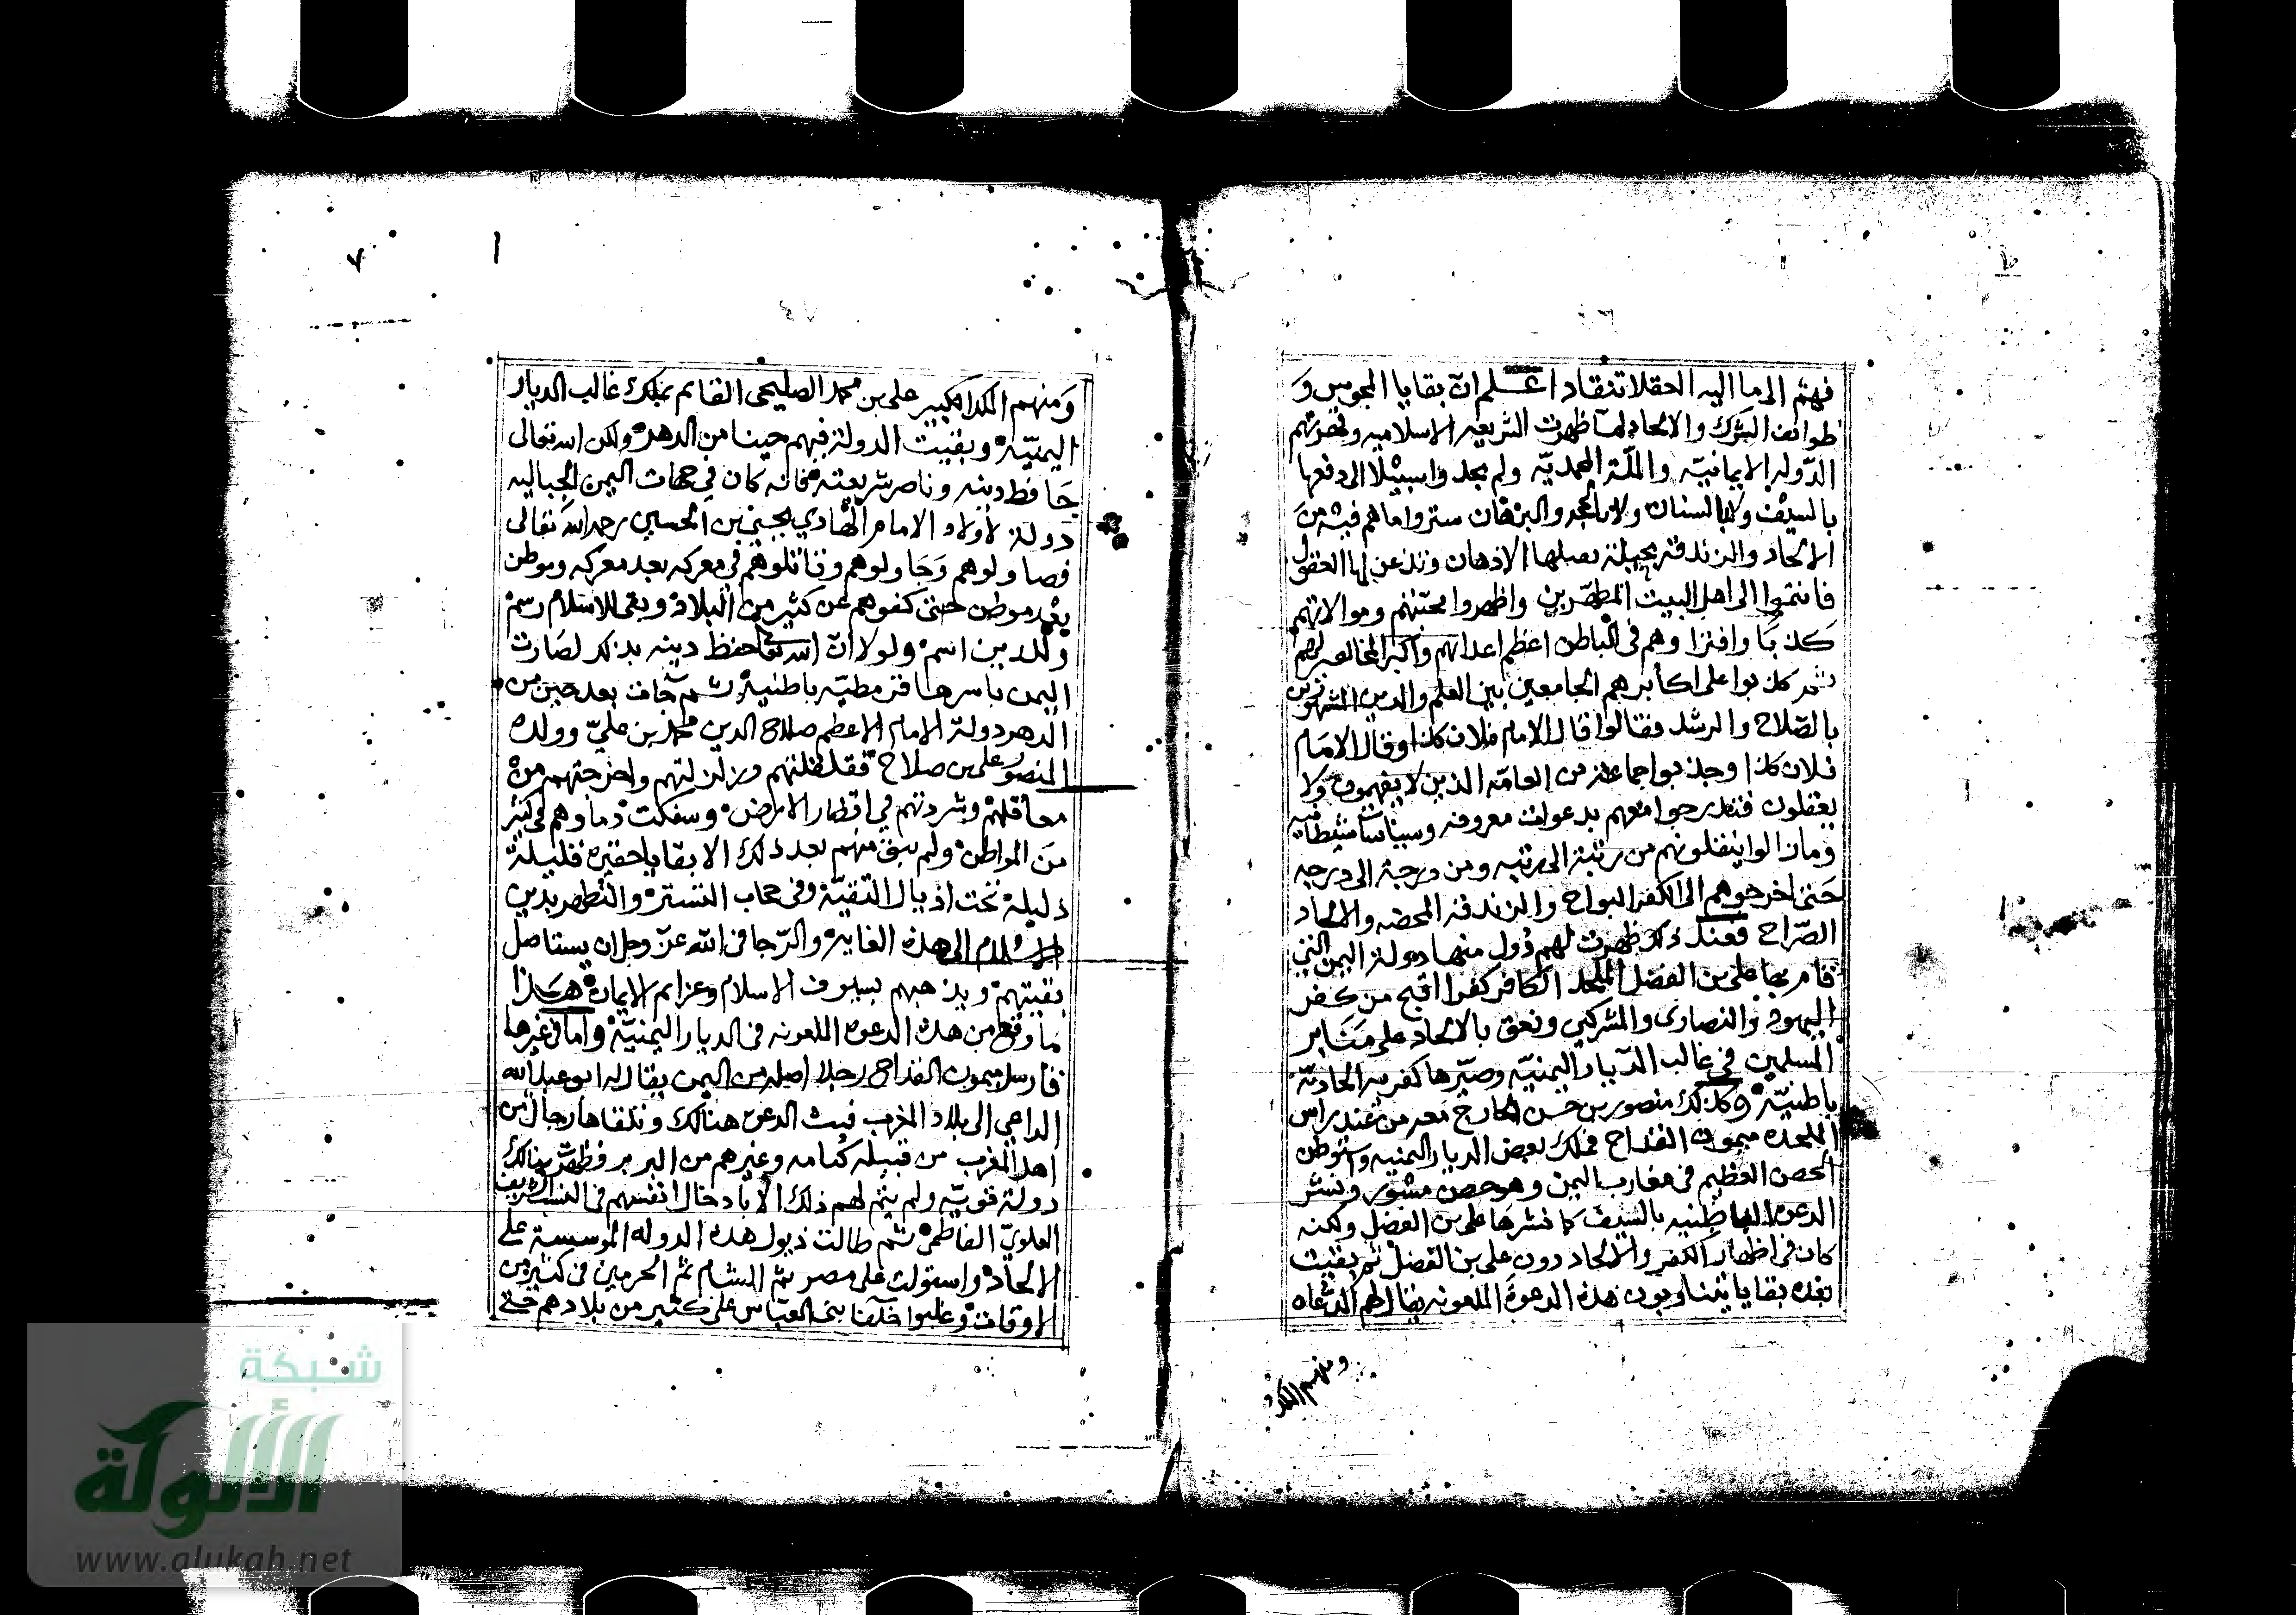 فهم الى ما اليه الحق لا تنقاد اعلم ان بقايا المجوس و
طوائف الشرك والالحاد لما ظهرت الشريعه الاسلاميه وقهرتهم
الدوله الايمانيّه والملّة المحمديّه ولم يجدوا سبيلا الى دفعها
بالسيف ولا بالسنان ولا بالحجه والبرهان ستروا ما هم فيه من
الالحاد والزندقه بحيلة تقبلها الاذهان وتذعن لها العقول
فانتموا الى اهل البيت المطهّرين واظهروا محبّتهم وموالاتهم
كذبًا وافترا وهم في الباطن اعظم اعدائهم واكبر المخالفين لهم
ثم كذبوا على اكابرهم الجامعين بين العلم والدين المشهورين
بالصّلاح والرشد فقالوا قال الامام فلان كذا وقال الامام
فلان كذا وجذبوا جماعة من العامّه الذين لا يفهمون ولا
يعقلون فتدرجوا معهم بدعوات معروفه وسياسات شيطانيه
وما زالوا ينقلونهم من رتبة الى رتبه ومن درجة الى درجه
حتى اخرجوهم الى الكفر البواح والزندقه المحضه والالحاد
الصّراح فعند ذلك ظهرت لهم دول منها دولة اليمن التي
قام بها علي بن الفضل الملحد الكافر كفرا اقبح من كفر
اليهود والنصارى والمشركين ونعق بالالحاد على منابر
المسلمين في غالب الدّيار اليمنيّه وصيّرها كفريه الحاديّة
باطنيّه وكذلك منصور بن حسن الخارج معه من عند راس
الملحده ميمون القداح فملك بعض الديار اليمنيه واستوطن
الحصن العظيم في مغارب اليمن وهو حصن مسور ونشر
الدعوة الباطنيه بالسيف كما نشرها علي بن الفضل ولكنه
كان في اظهار الكفر والالحاد دون علي بن الفضل ثم بقيت
بعده بقايا يتناوبون هذه الدعوة الملعونه يقال لهم الدعاه
ومنهم الملك
٧
ومنهم الملك الكبير علي بن محمد الصليحي القائم بملك غالب الديار
اليمنيّة وبقيت الدولة فيهم حينا من الدهر ولكن الله تعالى
حافظ دينه وناصر شريعته فانه كان في جهات اليمن الجباليه
دولة لاولاد الامام الهادي يحيى بن الحسين رحمه الله تعالى
فصاولوهم وجاولوهم وقاتلوهم في معركه بعد معركه وموطن
بعد موطن حتى كفوهم عن كثير من البلاد وبقى للاسلام رسم
وللدين اسم ولولا ان الله تعالى حفظ دينه بذلك لصارت
اليمن باسرها قرمطيّه باطنية ثم جاءت بعد حين من
الدهر دولة الامام الاعظم صلاح الدين محمد بن عليّ وولده
المنصور علي بن صلاح فقلقلتهم وزلزلتهم واخرجتهم من
معاقلهم وشردتهم في اقطار الارض وسفكت دماوهم في كثير
من المواطن ولم يبق منهم بعد ذلك الا بقايا حقيره قليلة
ذليلة تحت اذيال التقيّة وفي حجاب التستر والتظهر بدين
الاسلام الى هذه الغايه والرّجا في الله عزّ وجل ان يستاصل
بقيتهم ويذهبهم بسيوف الاسلام وعزائم الايمان هكذا
ما وقع من هذه الدعوه الملعونه في الديار اليمنيّة واما في غيرها
فارسل ميمون القداح رجلا اصله من اليمن يقال له ابو عبد الله
الداعي الى بلاد المغرب فبث الدعوه هنالك وتلقاها رجال من
اهل المغرب من قبيله كتامه وغيرهم من البربر وظهرت هنالك
دولة قويّه ولم يتم لهم ذلك الا بادخال انفسهم في النسب الشريف
العلويّ الفاطمي ثم طالت ذيول هذه الدوله الموسسة على
الالحاد واستولت على مصر ثم الشام ثم الحرمين في كثير من
الاوقات وغلبوا خلفا بني العباس على كثير من بلادهم حتى
شبكة
الألوكة
www.alukah.net